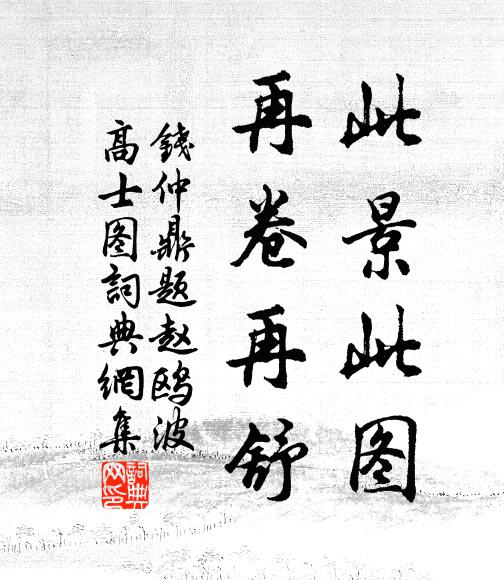 此景此图
再卷再舒
錢仲鼎题赵鸥波
高士图詞典網集
詞典
网印